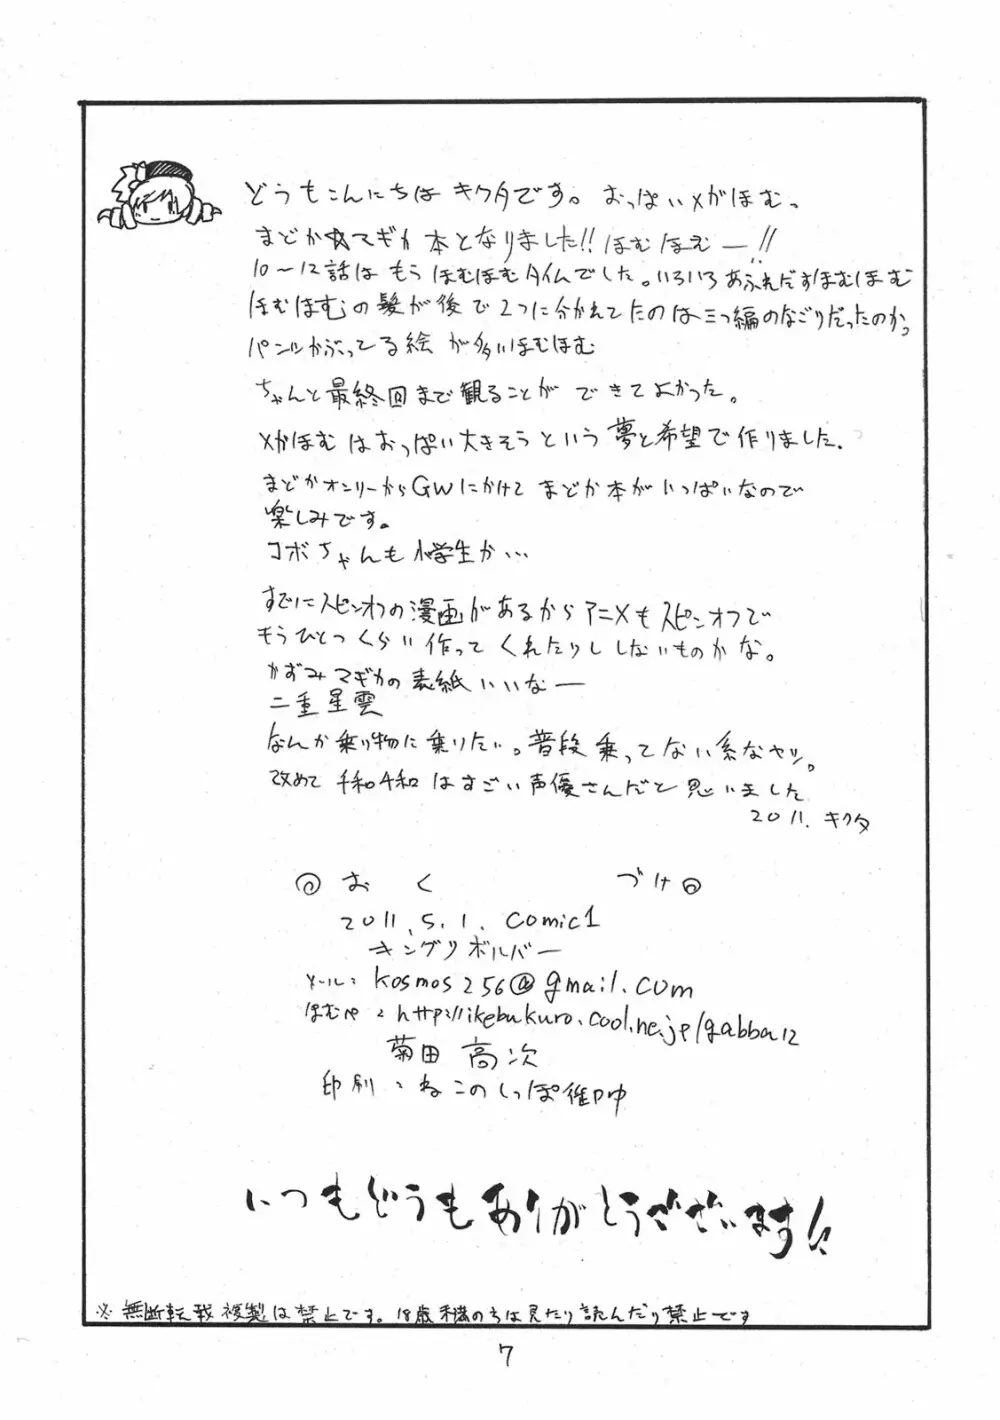 どうもこんにちは キクタです。おっぱいメがほむっ
まどか☆マギカ 本となりました!! ほむほむー!!
10〜12話は もう ほむほむタイムでした。いろいろあふれだすほむほむ
ほむほむの髪が後で2つに分かれてたのは三つ編のなごりだったのか。
パンツかぶってる絵 が多いほむほむ
ちゃんと最終回まで観ることが できてよかった。
メがほむはおっぱい大きそうという 夢と希望で作りました.
まどかオンリーからGWにかけて まどか本がいっぱいなので
楽しみです。
コボちゃんも小学生か…
すでにスピンオフの漫画があるからアニメもスピンオフで
もうひとつくらい作って くれたりしないものかな。
かずみマギカの表紙いいなー
二重星雲
なんか乗り物に乗りたい。普段乗ってない系なヤツ。
改めて 千和千和はすごい声優さんだと思いました
2011. キクタ
◎おく づけ◎
2011.5.1. comic1
キングリボルバー
メール: kosmos256@gmail.com
ほむぺ: http://ikebukuro.cool.ne.jp/gabba12
菊田 高次
印刷: ねこのしっぽ様
いつもどうもありがとうございます!!
※無断転載複製は禁止です。18歳未満の方は見たり読んだり禁止です
7